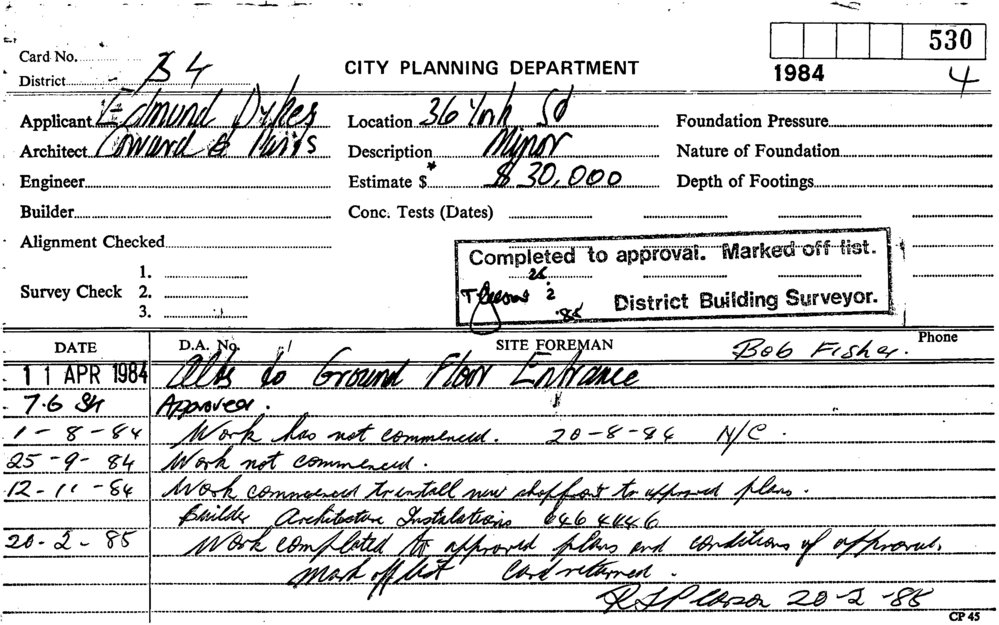 530
Card No.
CITY PLANNING DEPARTMENT
1984 4
District B 4
Applicant Edmund Dykes Location 36 York St Foundation Pressure
Architect Howard & Description Minor Nature of Foundation
Engineer Estimate $ * $ 30,000 Depth of Footings
Builder Conc. Tests (Dates)
Alignment Checked
Completed to approval. Marked off list.
1.
26
Survey Check 2.
2
District Building Surveyor.
3.
'85
DATE D.A. No. SITE FOREMAN Bob Fisher. Phone
11 APR 1984 Alts to Ground Floor Entrance
7.6 84 Approved.
1-8-84 Work has not commenced. 20-8-84 N/C.
25-9-84 Work not commenced.
12-11-84 Work commenced to install new shopfront to approved plans.
Builder Architecture Instalations 646 4446
20-2-85 Work completed to approved plans and conditions of approval.
Mark off list Card returned.
20-2-85
CP 45